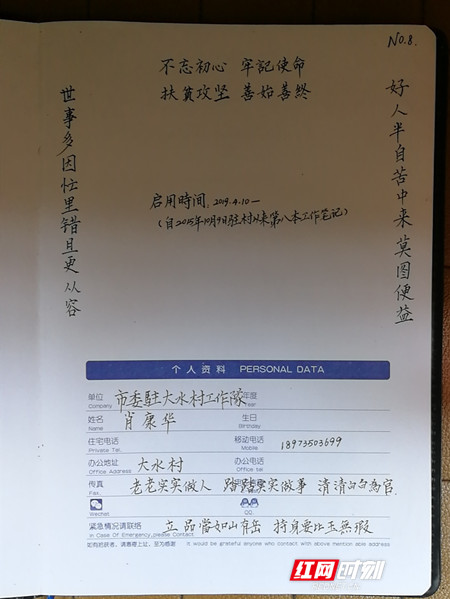 NO.8.
不忘初心 牢記使命
扶貧攻坚 善始善終
好人半自苦中来莫图便益
世事多因忙里错且更从容
启用时间,2019.4.10—
(自2015年10月9日驻村以来第八本工作笔记)
个人资料 PERSONAL DATA
单位 市委驻大水村工作队 年度
Company Year
姓名 肖康华 生日
Name Birthday
住宅电话 移动电话 18973503699
Private Tel. Mobile
办公地址 大水村 办公电话
Office Address Office tel
传真 老老实实做人 踏踏实实做事 清清白白為官
Fax.
Wechat QQ
紧急情况请联络 立品當如山有岳 持身要比玉無瑕
In Case Of Emergency,please Contact
如有拾获者,请惠赠上址,至为感谢 It would be grateful anyone who contact with above mention able address
红网时刻